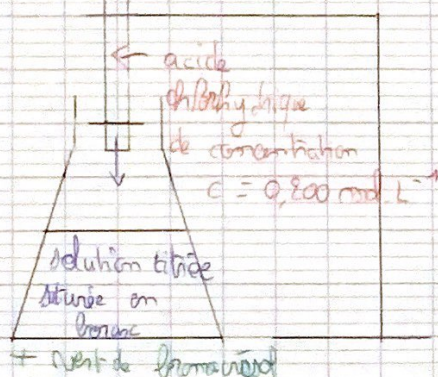 ← acide
chlorhydrique
de concentration
C = 0,200 mol.L⁻¹
solution titrée
saturée en
borax
+ vert de bromocrésol